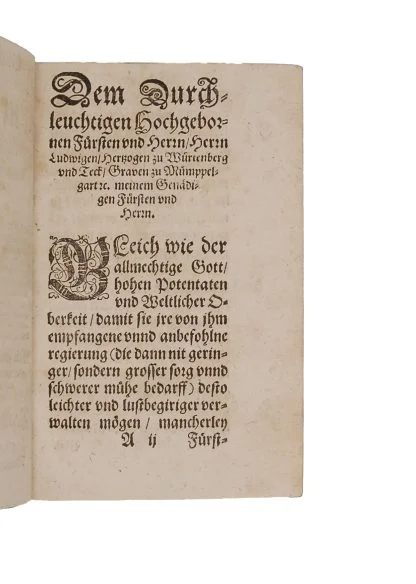 Dem Durch-
leuchtigen Hochgebor-
nen Fürsten vnd Herrn/Herrn
Ludwigen/Hertzogen zu Würtenberg
vnd Teck/Graven zu Mümppel-
gart ꝛc. meinem Genädi-
gen Fürsten vnd
Herrn.
GLeich wie der
allmechtige Gott/
hohen Potentaten
vnd Weltlicher O-
berkeit/damit sie jre von jhm
empfangene vnnd anbefohlne
regierung (die dann nit gerin-
ger/sondern grosser sorg vnnd
schwerer mühe bedarff) desto
leichter vnd lustbegiriger ver-
walten mögen/ mancherley
A ij Fürst-